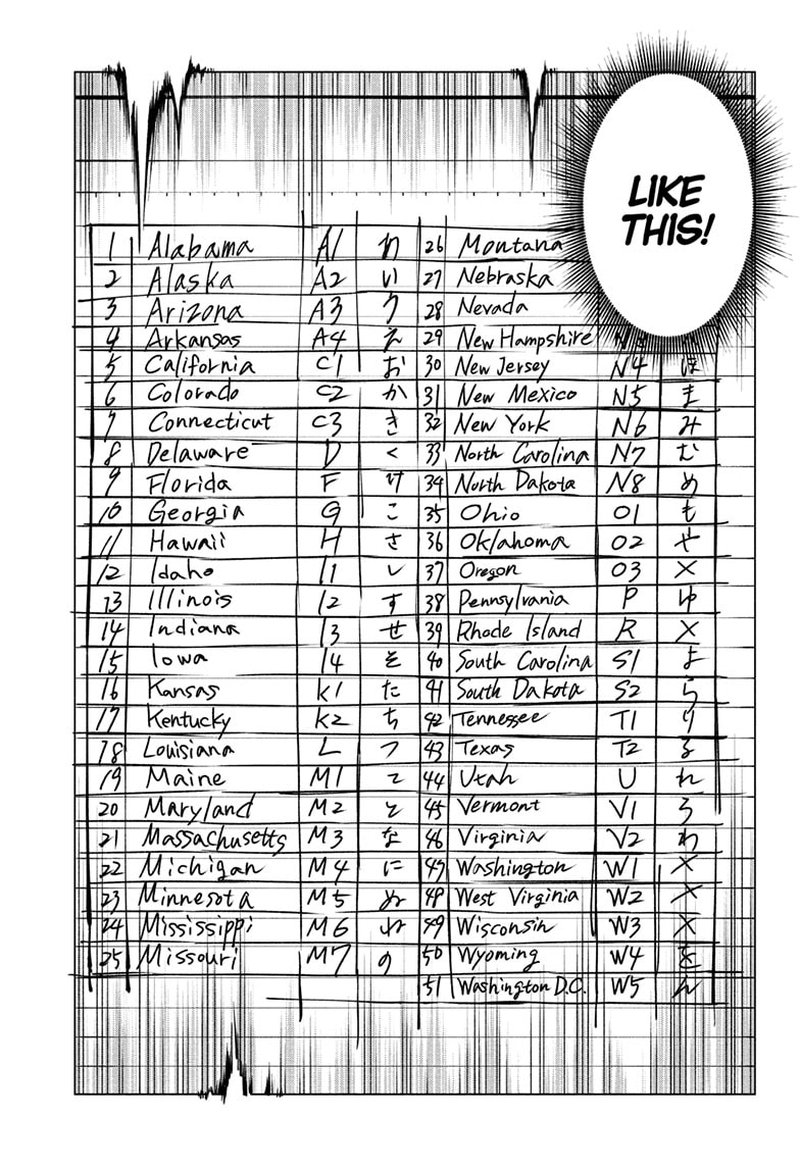 LIKE
THIS!
1 Alabama A1 あ
2 Alaska A2 い
3 Arizona A3 う
4 Arkansas A4 え
5 California C1 お
6 Colorado C2 か
7 Connecticut C3 き
8 Delaware D く
9 Florida F け
10 Georgia G こ
11 Hawaii H さ
12 Idaho I1 し
13 Illinois I2 す
14 Indiana I3 せ
15 Iowa I4 そ
16 Kansas K1 た
17 Kentucky K2 ち
18 Louisiana L つ
19 Maine M1 て
20 Maryland M2 と
21 Massachusetts M3 な
22 Michigan M4 に
23 Minnesota M5 ぬ
24 Mississippi M6 ね
25 Missouri M7 の
26 Montana
27 Nebraska
28 Nevada
29 New Hampshire
30 New Jersey N4 ほ
31 New Mexico N5 ま
32 New York N6 み
33 North Carolina N7 む
34 North Dakota N8 め
35 Ohio O1 も
36 Oklahoma O2 や
37 Oregon O3 ×
38 Pennsylvania P ゆ
39 Rhode Island R ×
40 South Carolina S1 よ
41 South Dakota S2 ら
42 Tennessee T1 り
43 Texas T2 る
44 Utah U れ
45 Vermont V1 ろ
46 Virginia V2 わ
47 Washington W1 ×
48 West Virginia W2 ×
49 Wisconsin W3 ×
50 Wyoming W4 を
51 Washington D.C. W5 ん